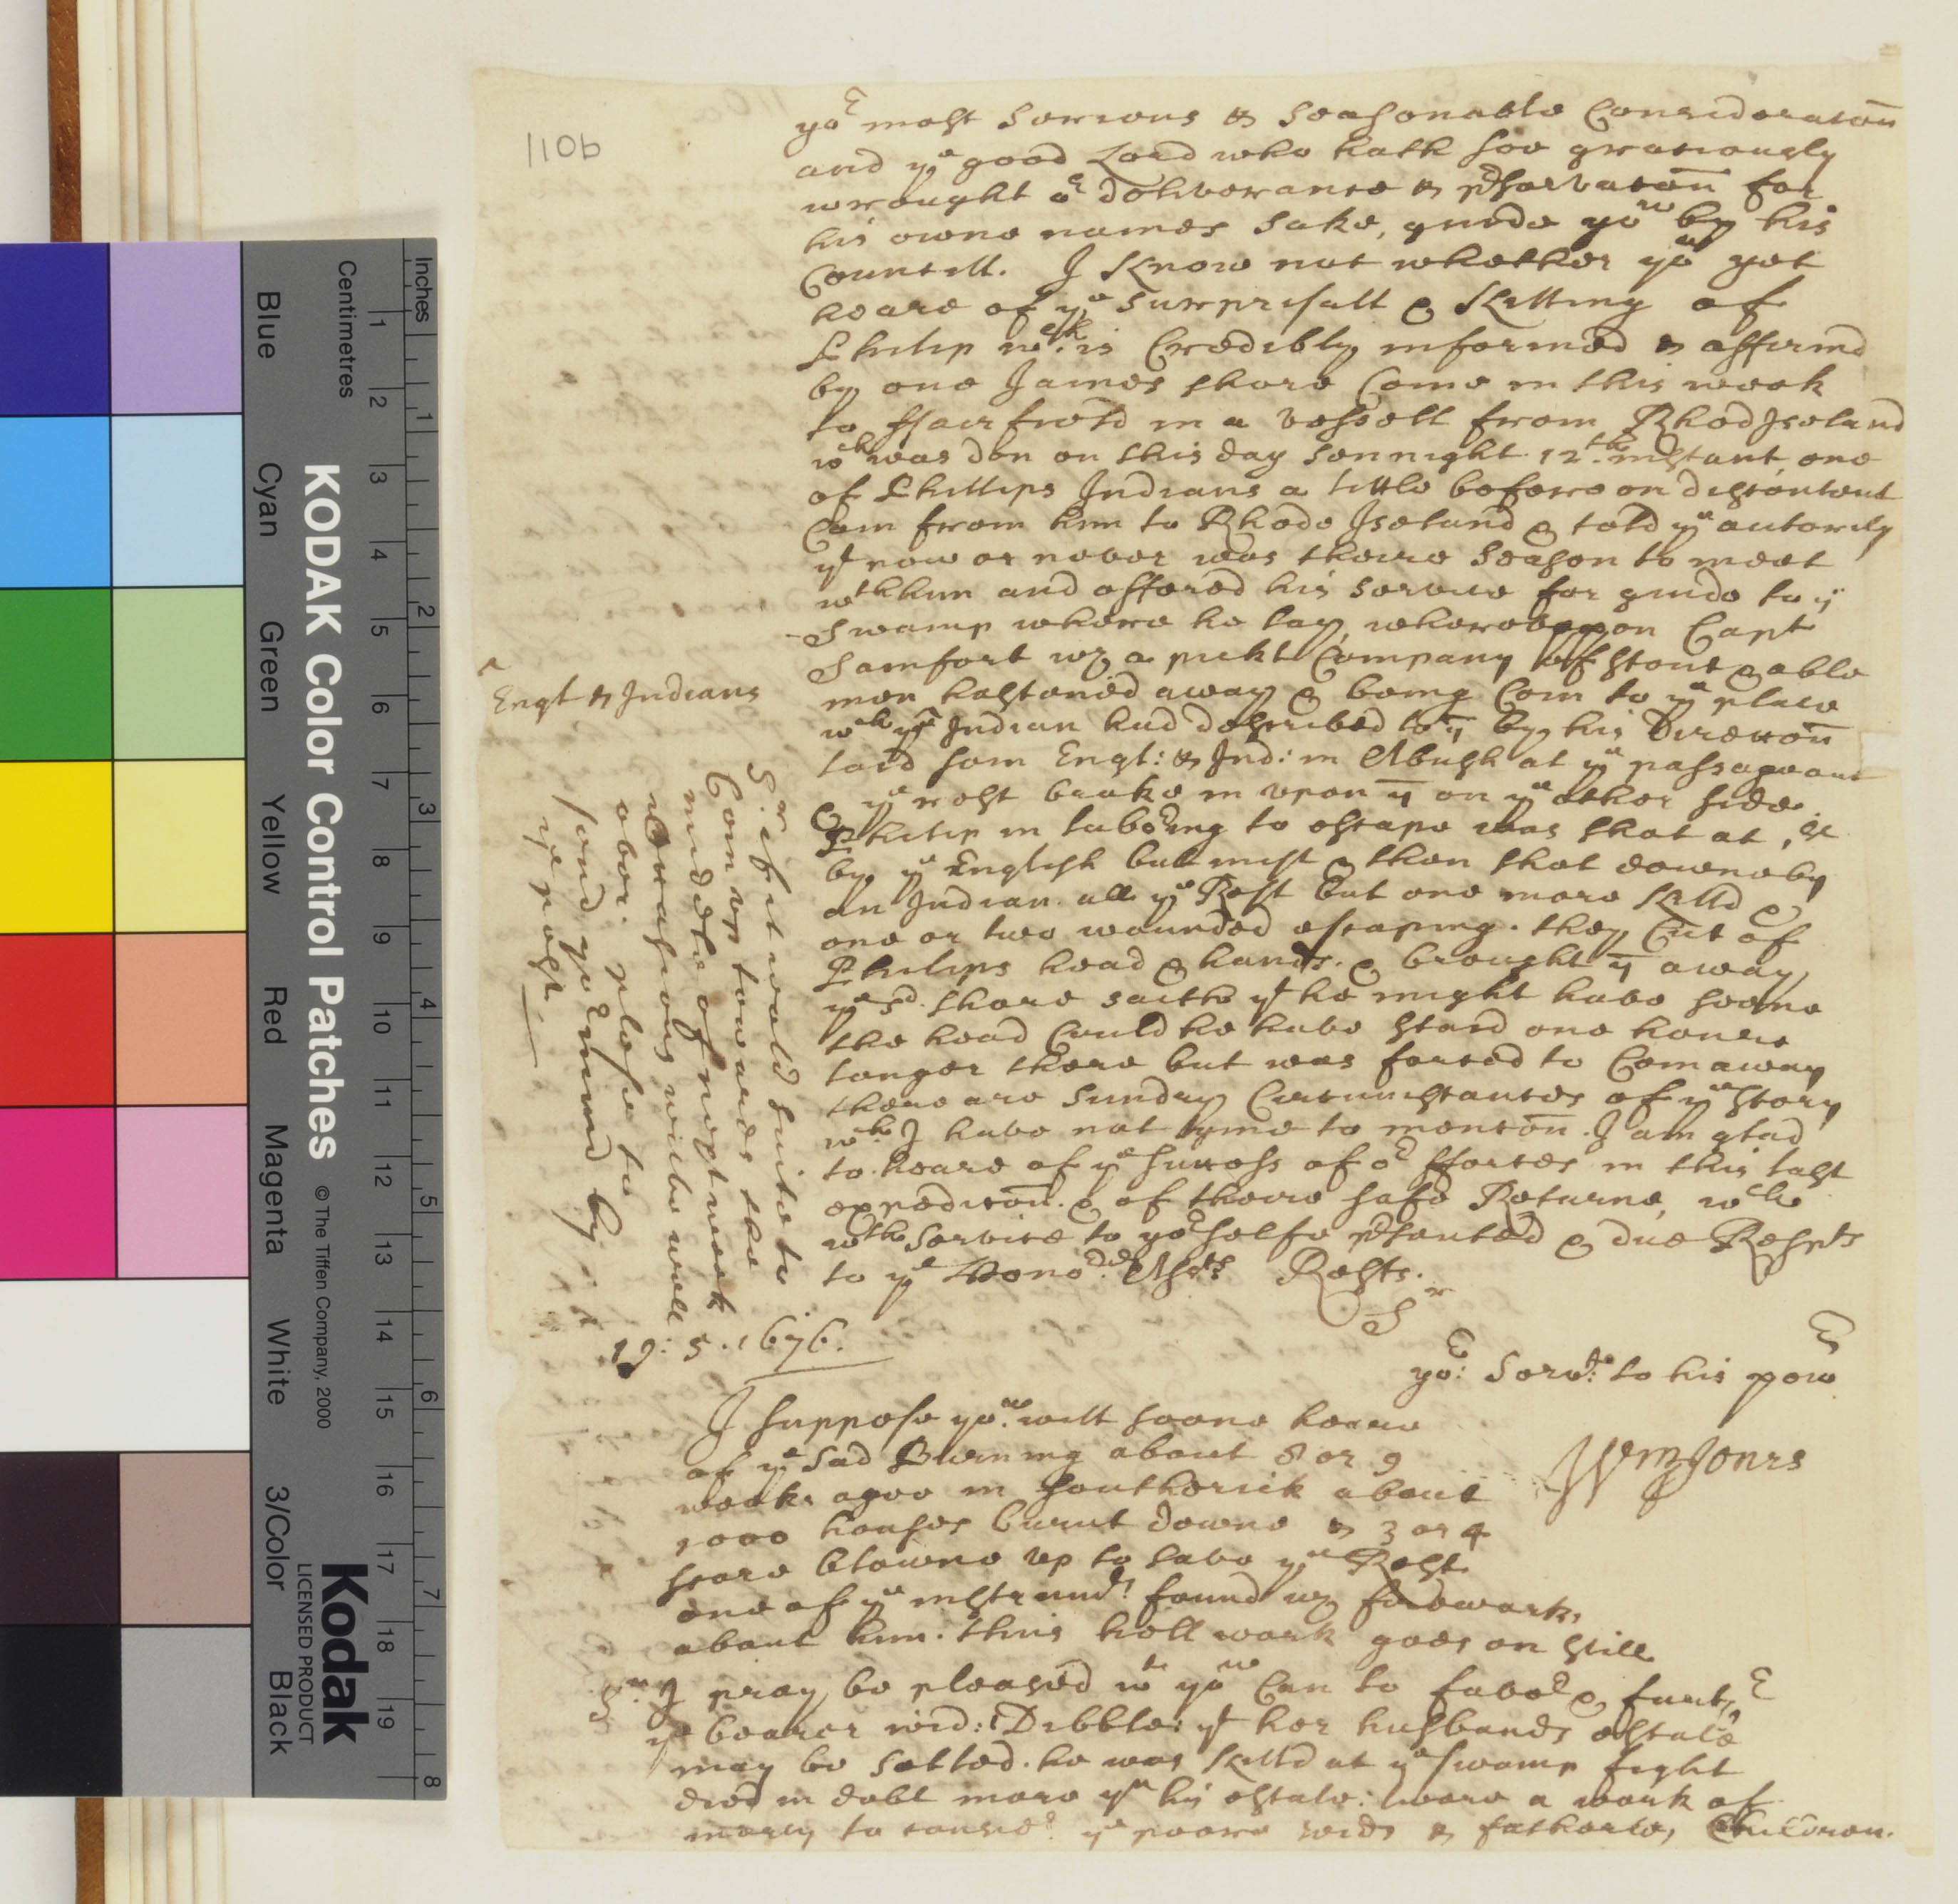 110b
yor most serious & seasonable Consideratōn
and ye good Lord who hath soe gratiously
wrought or deliverance & prservatōn for
his owne names sake, guide yow by his
Councill. I know not whether yow yet
heare of ye surprisall & killing of
Philip wch is Credibly informed & affirmd
by one James shore Come in this week
to ffairfield in a vessell from Rhod Iseland
wch was don on this day sennight 12th instant, one
of Phillips Indians a little before on discontent
Cam from him to Rhode Iseland & told ye autority
yt now or never was theire season to meet
wth him and offered his service for guide to ye
Swamp where he lay, whereuppon Capt
Samfort wth a pickt Company of stout & able
men hastened away & being Com to ye place
wch ye Indian had described to ym by his Directōn
laid som Engl: & Ind: in Abush at ye passage out
& ye rest brake in upon ym on ye other side.
Philip in laboring to escape was shot at,
by ye English but mist & then shot downe by
an Indian. all ye Rest but one more killd &
one or two wounded escaping. they Cut of
Philips head & hands. & brought ym away,
ye sd. shore saith yt he might have seene
the head Could he have staid one houre
longer there but was forced to Com away
there are sundry Circumstances of ye story
wch I have not tyme to mencōn. I am glad
to heare of ye success of or fforces in this last
expeditōn. & of theire safe Returne, wch
wth service to yorselfe prsented & due Respts
to ye Honord. Asts Rests.
Sr
yor: Servt: to his powr
Wm Jones
^
Engl & Indians
Sr. if it would suite to
Com up towards the
middle of next week
occasions will be well
over. please to
send yor mind by
ye post.
19: 5. 1676.
I suppose yow. will soone heare
of ye sad Burning about 8 or 9
weeks agoe in Southerick about
1000 houses burnt downe & 3 or 4
score blowne up to save ye Rest.
one of ye instrumts! found wth fireworks
about him. this hell work goes on still
Sr. I pray be pleased wt yow Can to favor & furthr
ye bearer wid: Dibble: yt her husbands estate
may be setled. he was killd at ye swamp fight
died in debt more yn his estate: twere a work of
mercy to considr ye poore widd & fatherles Children.
KODAK Color Control Patches © The Tiffen Company, 2000
Kodak
LICENSED PRODUCT
Inches
1 2 3 4 5 6 7 8
Centimetres
1 2 3 4 5 6 7 8 9 10 11 12 13 14 15 16 17 18 19
Blue Cyan Green Yellow Red Magenta White 3/Color Black